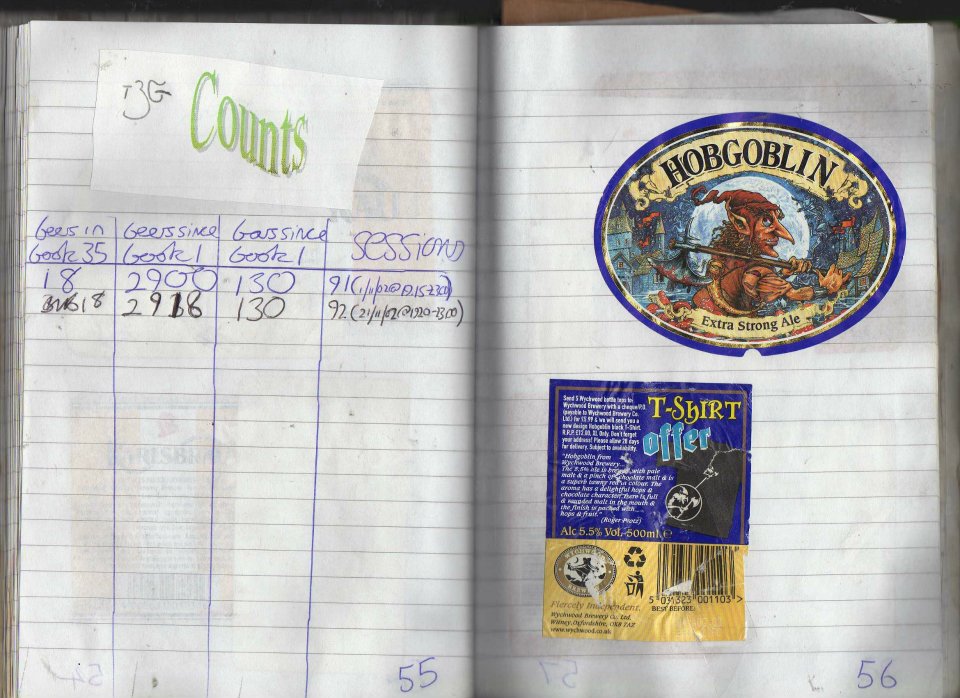 T3G Counts
Beers in
book 35
Beers since
book 1
Goes since
book 1
Sessions
18 2900 130 91 (1/11/02@1915-2300)
18 2918 130 92 (21/11/02@1920-2300)
55
HOBGOBLIN
Extra Strong Ale
Send 5 Wychwood bottle tops to
Wychwood Brewery with a cheque/P.O
(payable to Wychwood Brewery Co.
Ltd.) for £5.99 & we will send you a
new design Hobgoblin black T-Shirt.
R.R.P. £12.00, XL Only. Don't forget
your address! Please allow 28 days
for delivery. Subject to availability.
T-ShIRT
offer
"Hobgoblin from
Wychwood Brewery
The 5.5% ale is brewed with pale
malt & a pinch of chocolate malt & is
a superb tawny red in colour. The
aroma has a delightful hops &
chocolate character. There is full
& rounded malt in the mouth &
the finish is packed with
hops & fruit."
(Roger Protz)
Alc 5.5% Vol. 500ml. e
Fiercely Independent.
Wychwood Brewery Co. Ltd.
Witney, Oxfordshire, OX8 7AZ
www.wychwood.co.uk
5 031323 001103 >
BEST BEFORE
56